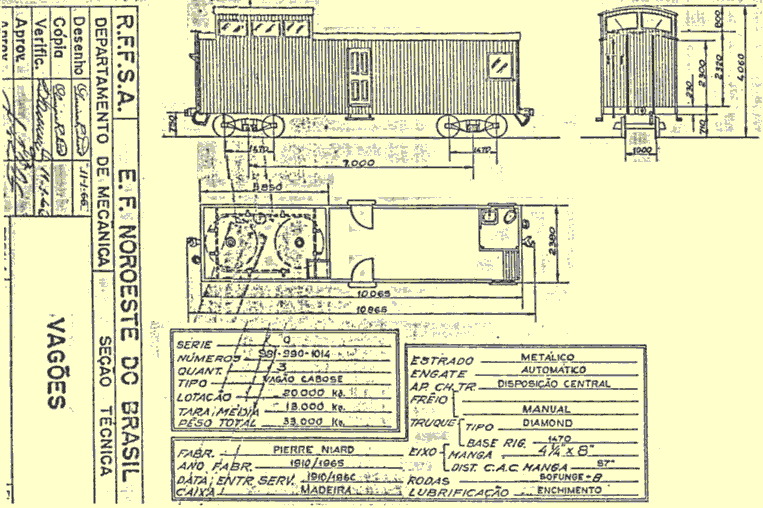 R.F.F.S.A.
E. F. NOROESTE DO BRASIL
DEPARTAMENTO DE MECANICA
SEÇÃO TÉCNICA
Desenho
11-1-66
Cópia
Verific.
Aprov.
Aprov.
VAGÕES
1470
7.000
1470
800
4.060
2320
2300
230
1000
3.850
2380
10.065
10.865
SERIE
NÚMEROS 991-990-1014
QUANT. 3
TIPO VAGÃO CABOSE
LOTAÇÃO 20.000 Kg.
TARA MÉDIA 13.000 Kg.
PÊSO TOTAL 33.000 Kg.
FABR. PIERRE NIARD
ANO FABR. 1910/1965
DATA ENTR. SERV.
CAIXA MADEIRA
ESTRADO METÁLICO
ENGATE AUTOMÁTICO
AP. CH. TR. DISPOSIÇÃO CENTRAL
FREIO
MANUAL
TRUQUE TIPO DIAMOND
BASE RIG. 1470
EIXO MANGA 4¼" x 8"
DIST. C.A.C. MANGA
RODAS SOFUNGE-8
LUBRIFICAÇÃO ENCHIMENTO